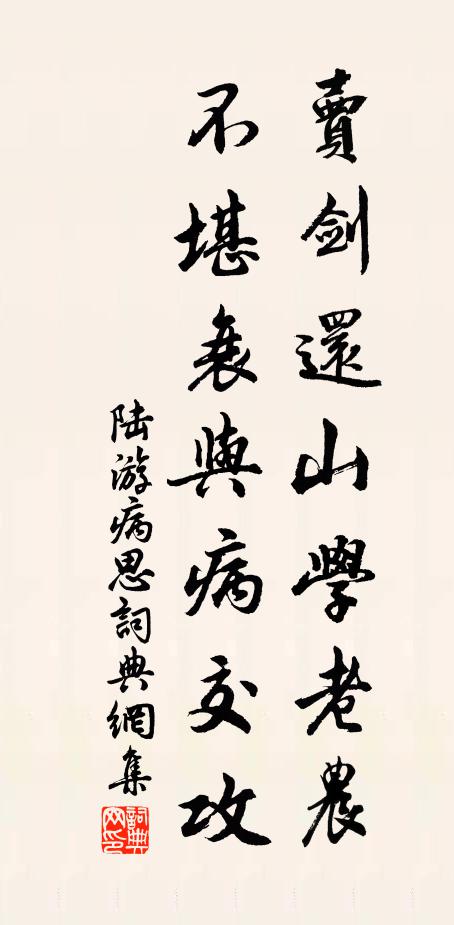 賣劍還山學老農
不堪衰與病交攻
陆游病思詞典網集
詞典网印